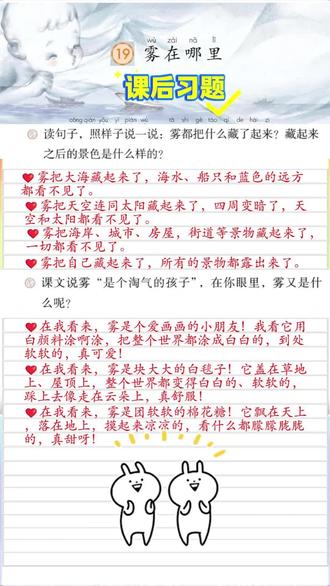 wù zài nǎ lǐ
19 雾在哪里
课后习题
cóng qián yǒu yí piàn wù tā shì gè táo qì de hái zi
读句子，照样子说一说：雾都把什么藏了起来？藏起来
之后的景色是什么样的？
雾把大海藏起来了，海水、船只和蓝色的远方
都看不见了。
雾把天空连同太阳藏起来了，四周变暗了，天
空和太阳都看不见了。
雾把海岸、城市、房屋，街道等景物藏起来了，
一切都看不见了。
雾把自己藏起来了，所有的景物都露出来了。
课文说雾“是个淘气的孩子”，在你眼里，雾又是什
么呢？
在我看来，雾是个爱画画的小朋友！我看它用
白颜料涂啊涂，把整个世界都涂成白白的，到处
软软的，真可爱！
在我看来，雾是块大大的白毯子！它盖在草地
上、屋顶上，整个世界都变得白白的、软软的，
踩上去像走在云朵上，真舒服！
在我看来，雾是团软软的棉花糖！它飘在天上
，落在地上，摸起来凉凉的，看什么都朦朦胧胧
的，真甜呀！